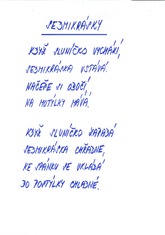 SEDMIKRÁSKY
KDYŽ SLUNÍČKO VYCHÁZÍ,
SEDMIKRÁSKA VSTÁVÁ.
NAČEŠE SI OBOČÍ,
NA MOTÝLKY MÁVÁ.
KDYŽ SLUNÍČKO ZAPADÁ
SEDMIKRÁSKA CHŘADNE,
KE SPÁNKU SE UKLÁDÁ
DO POSTÝLKY CHLADNÉ.